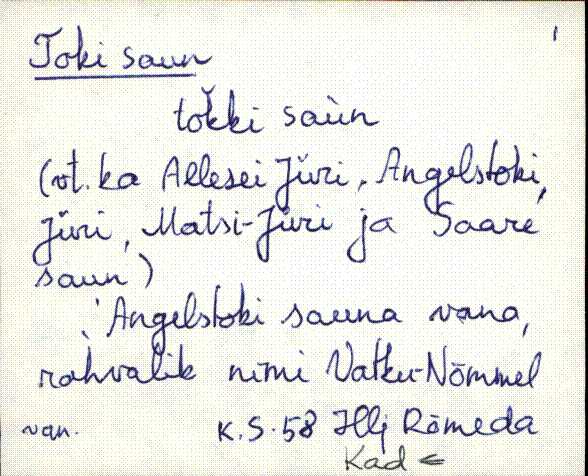 Toki saun 1
tok̆ki saùn
(vt. ka Allesei Jüri, Angelstoki,
Jüri, Matsi-Jüri ja Saare
saun)
Angelstoki sauna vana,
rahvalik nimi Vatku-Nõmmel
van. K.S. 58 Hlj Rõmeda
Kad